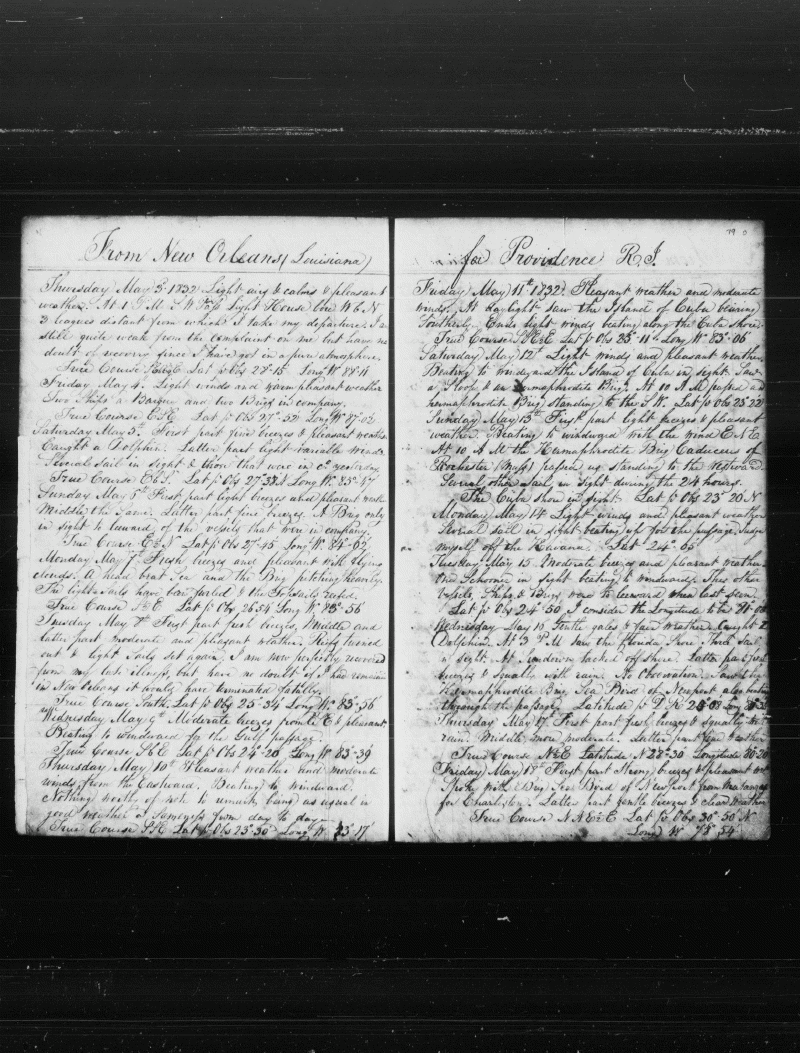 From New Orleans (Louisiana)
Thursday May 3d 1832 Light airs & calms & pleasant
weather. At 1 P M S W Pass Light House bore W b N
3 leagues distant from which I take my departure. I am
still quite weak from the complaint on me but have no
doubt of recovery since I have got in a pure atmosphere.
True Course Lat pr Obs 28-15 Long W. 88-11
Friday May 4. Light winds and warm pleasant weather
Two Ships a Barque and two Brigs in company.
True Course E S E Lat pr Obs 27-52 Long W. 87-02
Saturday May 5th. First part fine breezes & pleasant weather
Caught a Dolphin. Latter part light variable winds
Several sail in sight & those that were in co yesterday.
True Course E b S. Lat pr Obs Long W. 85-47
Sunday May 6th First part light breezes and pleasant weather
Middle the same. Latter part fine breezes. A Brig only
in sight to leeward of the vessels that were in company.
True Course Lat pr Obs 27-45 Long W. 84-92
Monday May 7th Fresh breezes and pleasant with flying
clouds. A head beat Sea and the Brig pitching heavily.
The light sails have been furled & the Topsails reefed.
True Course S E Lat pr Obs 26 54 Long W. 83-56
Tuesday May 8th First part fresh breezes, Middle and
latter part moderate and pleasant weather. Reefs turned
out & light sails set again. I am now perfectly recovered
from my late illness, but have no doubt if I had remained
in New Orleans it would have terminated fatally.
True Course South. Lat pr Obs 25-34 Long W. 83-56
Wednesday May 9th Moderate breezes from E & pleasant
Beating to windward for the Gulf passage.
True Course S b E Lat pr Obs 24-20 Long W. 83-39
Thursday May 10th Pleasant weather and moderate
winds from the Eastward. Beating to windward.
Nothing worthy of note to remark, being as usual in
good weather a sameness from day to day
True Course Lat pr Obs 23-30 Long W. 83 17
for Providence R. I.
79
Friday May 11th 1832. Pleasant weather and moderate
winds. At daylight saw the Island of Cuba bearing
Southerly. Ends light winds beating along the Cuba shore.
True Course Lat pr Obs 23-11 Long W. 83-06
Saturday May 12th Light winds and pleasant weather
Beating to windward the Island of Cuba in sight. Saw
a Sloop & an hermaphrodite Brig. At 10 A M passed an
hermaphrodite Brig standing to the S. W. Lat pr Obs 23 22
Sunday May 13th First part light breezes & pleasant
weather. Beating to windward with the wind E N E.
At 10 A M the Hermaphrodite Brig Caduceus of
Rochester (Mass) passed us standing to the westward
Several other sail in sight during the 24 hours.
The Cuba shore in sight Lat pr Obs 23° 20 N
Monday May 14 Light winds and pleasant weather
Several sail in sight beating up for the passage. Judge
myself off the Havana. Lat 24-05
Tuesday May 15. Moderate breezes and pleasant weather
One Schooner in sight beating to windward. The other
vessels, Ships & Brigs were to leeward when last seen.
Lat pr Obs 24-50 I consider the Longitude to be
Wednesday May 16 Gentle gales & fair weather. Caught 2
Dolphin. At 3 P. M saw the Florida Shore. Three sail
in sight. At Sundown tacked off shore. Latter part fresh
breezes & squally with rain. No Observation.
Hermaphrodite Brig Sea Bird of Newport also beating
through the passage. Latitude pr D. R Long
Thursday May 17. First part fresh breezes & squally with
rain. Middle more moderate. Latter part fair weather
True Course N b E Latitude N 28-30 Longitude 80-20
Friday May 18th First part strong breezes & pleasant
Spoke with Brig Sea Byrd of Newport from Matanzas
for Charleston. Latter part gentle breezes & clear weather
True Course Lat pr Obs 30-50 N
Long W